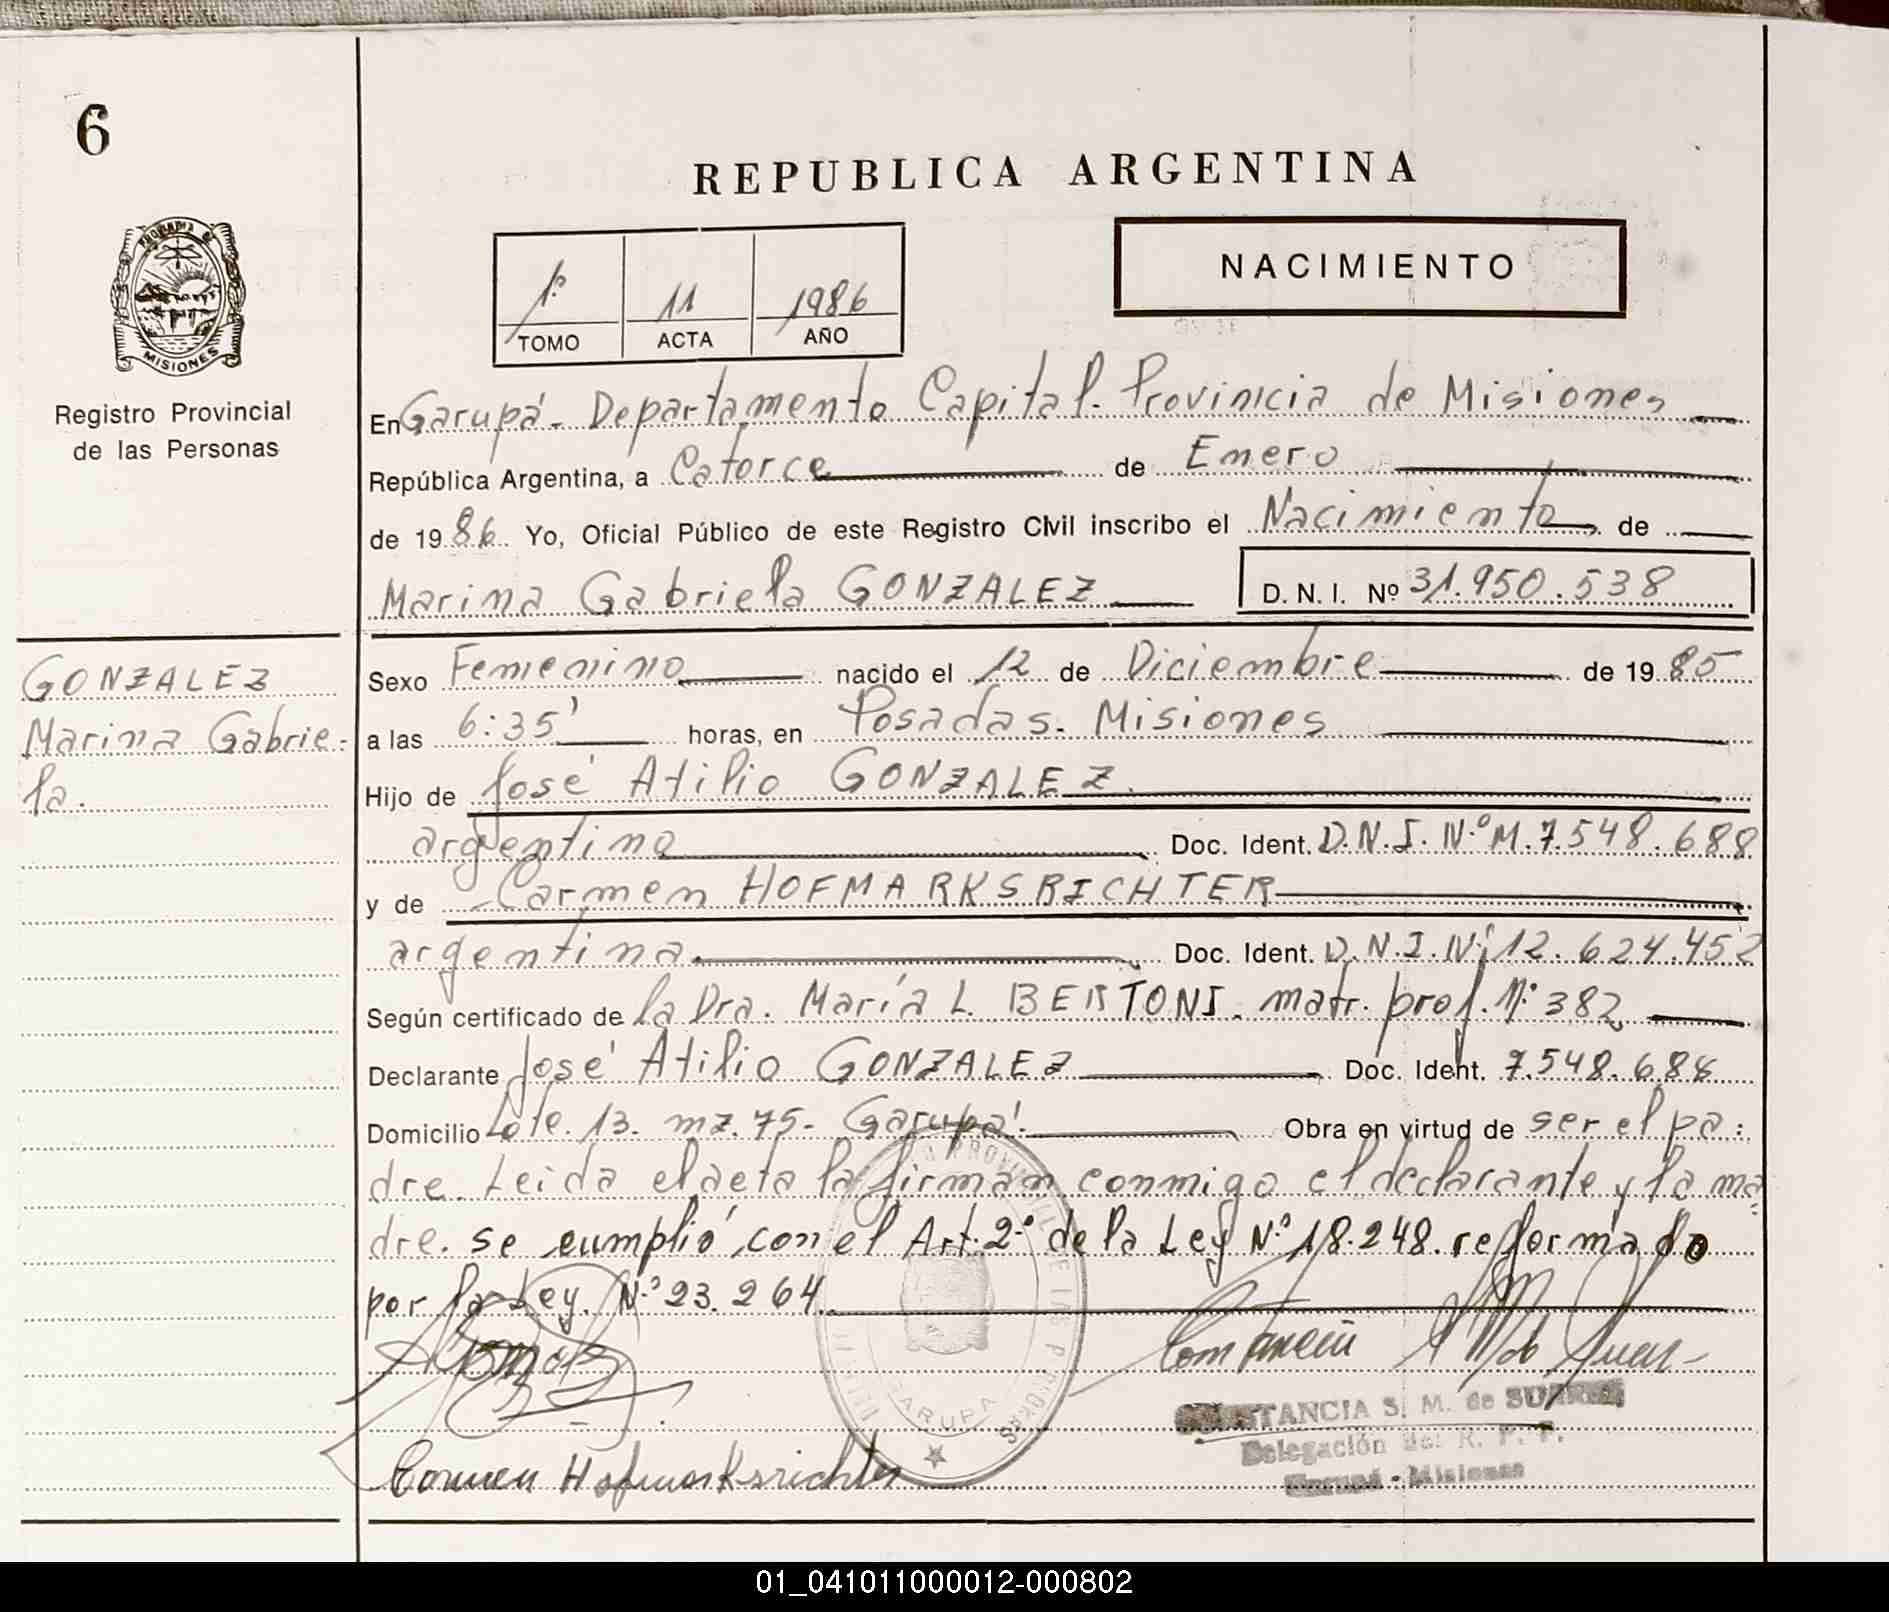 6
REPUBLICA ARGENTINA
NACIMIENTO
1º 11 1986
TOMO ACTA AÑO
PROVINCIA DE
MISIONES
Registro Provincial
de las Personas
En Garupá - Departamento Capital - Provincia de Misiones
República Argentina, a Catorce de Enero
de 1986 Yo, Oficial Público de este Registro Civil inscribo el Nacimiento de
Marina Gabriela GONZALEZ D. N. I. Nº 31.950.538
GONZALEZ
Marina Gabrie-
la.
Sexo Femenino nacido el 12 de Diciembre de 1985
a las 6:35' horas, en Posadas - Misiones
Hijo de José Atilio GONZALEZ
argentino Doc. Ident. D.N.I. Nº M. 7.548.688
y de Carmen HOFMARKSRICHTER
argentina Doc. Ident. D.N.I. Nº 12.624.452
Según certificado de la Dra. María L. BERTONI - matr. prof. Nº 382
Declarante José Atilio GONZALEZ Doc. Ident. 7.548.688
Domicilio Lote 13. mz. 75 - Garupá Obra en virtud de ser el pa:
dre. Leida el acta la firman conmigo el declarante y la ma
dre. se cumplió con el Art. 2º de la Ley Nº 18.248. reformado
por la Ley. Nº 23.264
Carmen Hofmarksrichter
GARUPA
CONSTANCIA S. M. de SUAREZ
Delegación del R. P. P.
Garupá - Misiones
01_041011000012-000802